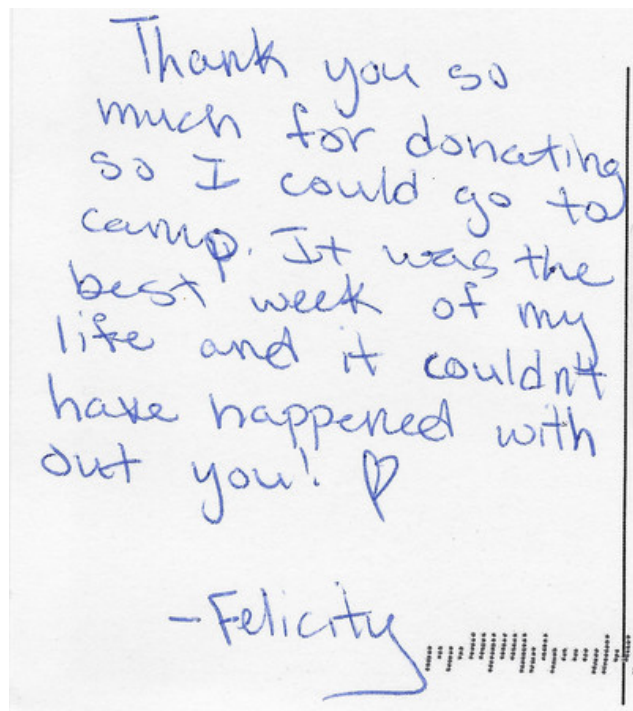 Thank you so
much for donating
so I could go to
camp. It was the
best week of my
life and it couldn't
have happened with
out you! ♡
-Felicity